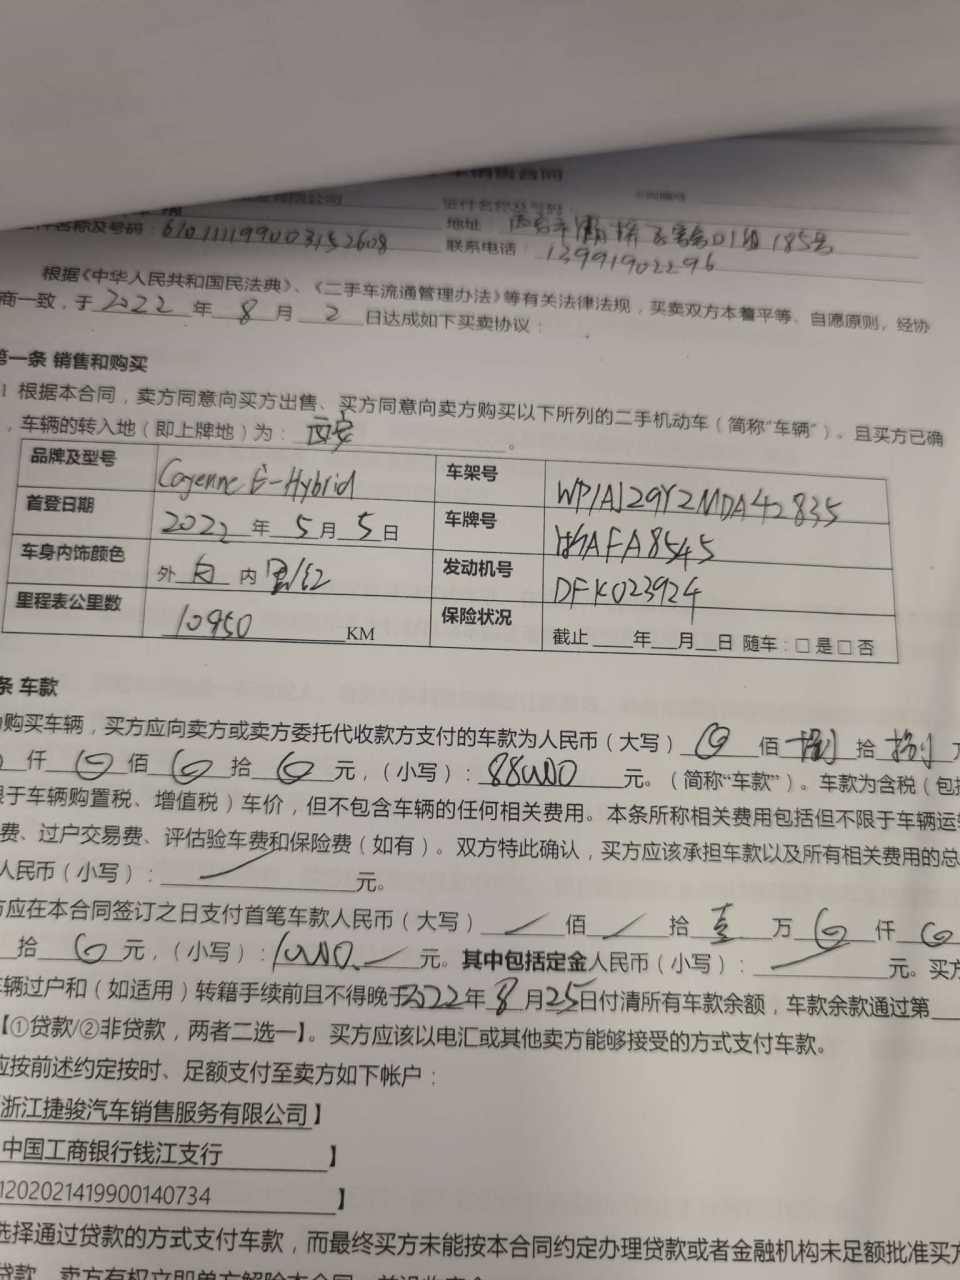 车销售合同
证件名称及号码：
件名称及号码：610111199003152608
地址：西安市灞桥区 口1组185号
联系电话：13991902296
根据《中华人民共和国民法典》、《二手车流通管理办法》等有关法律法规，买卖双方本着平等、自愿原则，经协
商一致，于2022年8月2日达成如下买卖协议：
第一条 销售和购买
1 根据本合同，卖方同意向买方出售、买方同意向卖方购买以下所列的二手机动车（简称“车辆”）。且买方已确
，车辆的转入地（即上牌地）为：西安。
品牌及型号 Cayenne E-Hybrid 车架号 WP1AJ29Y2MDA42835
首登日期 2022年5月5日 车牌号 浙AFA8545
车身内饰颜色 外白 内黑/红 发动机号 DFK023924
里程表公里数 10950 KM 保险状况 截止____年__月__日 随车：□是□否
条 车款
购买车辆，买方应向卖方或卖方委托代收款方支付的车款为人民币（大写）佰捌拾捌万
仟 佰 拾 元，（小写）：880000元。（简称“车款”）。车款为含税（包括
限于车辆购置税、增值税）车价，但不包含车辆的任何相关费用。本条所称相关费用包括但不限于车辆运输
费、过户交易费、评估验车费和保险费（如有）。双方特此确认，买方应该承担车款以及所有相关费用的总
人民币（小写）：/元。
方应在本合同签订之日支付首笔车款人民币（大写）/佰/拾壹万 仟
拾 元，（小写）：10000.元。其中包括定金人民币（小写）：/元。买方
车辆过户和（如适用）转籍手续前且不得晚于2022年8月25日付清所有车款余额，车款余款通过第
【①贷款/②非贷款，两者二选一】。买方应该以电汇或其他卖方能够接受的方式支付车款。
应按前述约定按时、足额支付至卖方如下帐户：
浙江捷骏汽车销售服务有限公司】
中国工商银行钱江支行】
1202021419900140734】
选择通过贷款的方式支付车款，而最终买方未能按本合同约定办理贷款或者金融机构未足额批准买方
贷款，卖方有权立即单方解除本合同，并没收定金